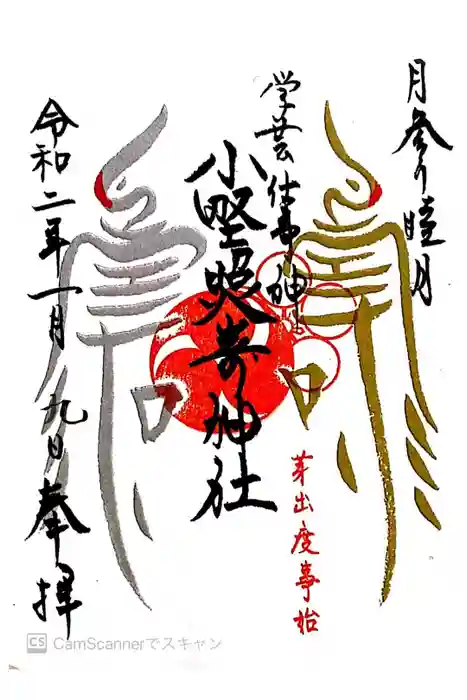 月参り睦月
学芸仕事神
小野照崎神社
芽出度事始
令和二年一月九日奉拝
CS CamScannerでスキャン